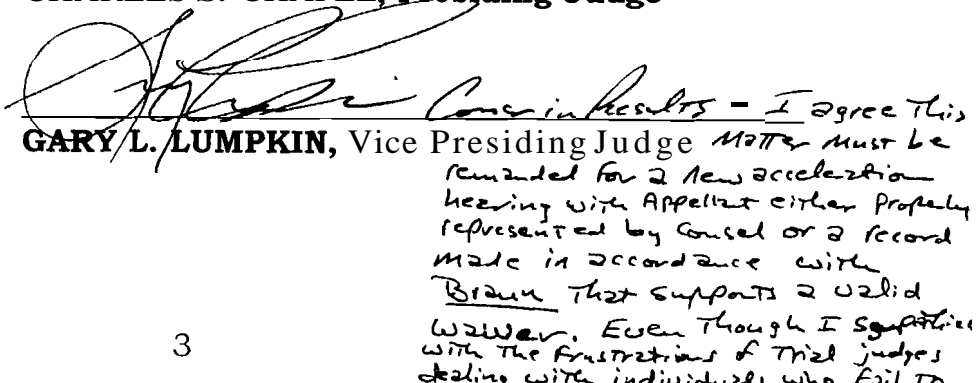 Presiding Judge
Concur in Results – I agree This
GARY L. LUMPKIN, Vice Presiding Judge Matter Must be
remanded for a new acceleration
hearing with Appellant either Properly
represented by Counsel or a record
made in accordance with
Braun That supports a valid
waiver. Even Though I sympathize
with The frustrations of Trial judges
dealing with individuals who fail To
3